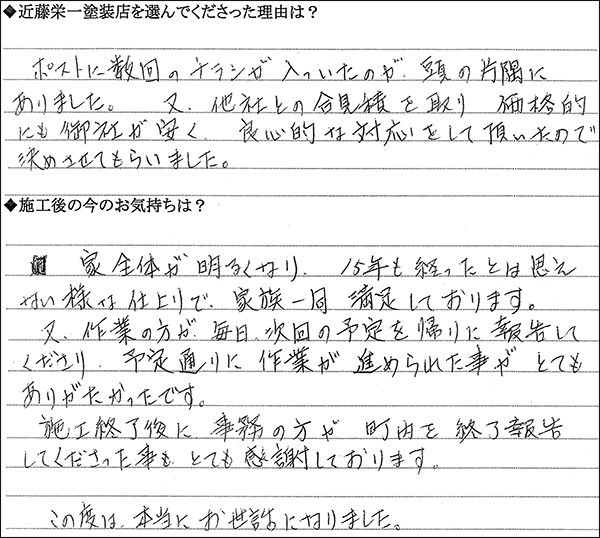 ◆近藤栄一塗装店を選んでくださった理由は?
ポストに数回のチラシが入っいたのが、頭の片隅に
ありました。 又、他社との合見積を取り 価格的
にも御社が安く、良心的な対応をして頂いたので
決めさせてもらいました。
◆施工後の今のお気持ちは?
家全体が明るくなり、15年も経ったとは思え
ない様な仕上りで、家族一同 満足しております。
又、作業の方が、毎日、次回の予定を帰りに報告して
くださり、予定通りに作業が進められた事が とても
ありがたかったです。
施工終了後に、事務の方が 町内を 終了報告
してくださった事も、とても感謝しております。
この度は、本当に お世話になりました。